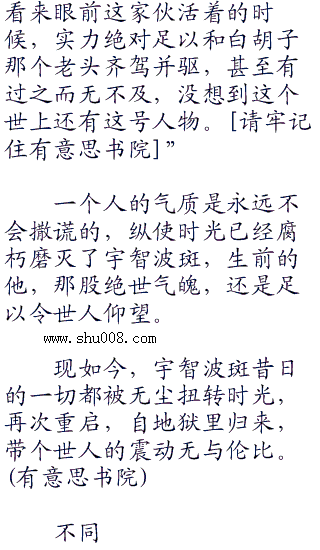 看来眼前这家伙活着的时
候，实力绝对足以和白胡子
那个老头齐驾并驱，甚至有
过之而无不及，没想到这个
世上还有这号人物。[请牢记
住有意思书院]”
一个人的气质是永远不
会撒谎的，纵使时光已经腐
朽磨灭了宇智波斑，生前的
他，那股绝世气魄，还是足
以令世人仰望。
www.shu008.com
现如今，宇智波斑昔日
的一切都被无尘扭转时光，
再次重启，自地狱里归来，
带个世人的震动无与伦比。
(有意思书院)
不同